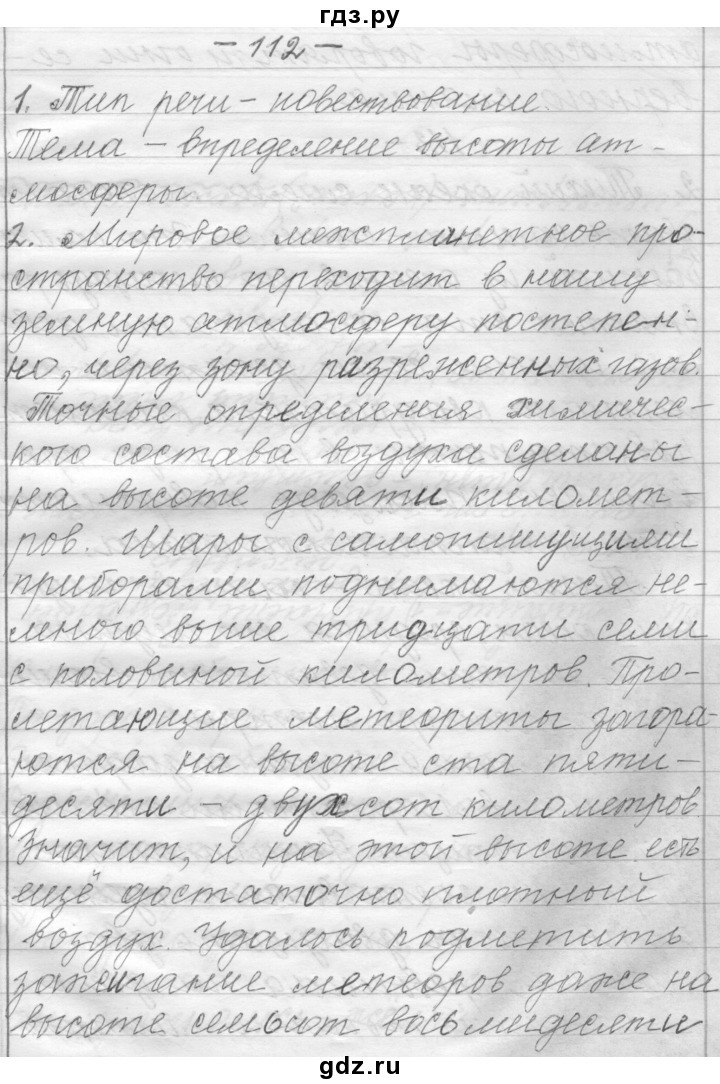 гдз.ру
- 112 -
1. Тип речи - повествование.
Тема - определение высоты ат-
мосферы.
2. Мировое межпланетное про-
странство переходит в нашу
земную атмосферу постепен-
но, через зону разреженных газов.
Точные определения химичес-
кого состава воздуха сделаны
на высоте девяти километ-
ров. Шары с самопишущими
приборами поднимаются не-
много выше тридцати семи
с половиной километров. Про-
летающие метеориты загора-
ются на высоте ста пяти-
десяти - двухсот километров
Значит, и на этой высоте есть
ещё достаточно плотный
воздух. Удалось подметить
зажигание метеоров даже на
высоте семьсот восьмидесяти
gdz.ru